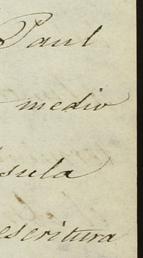 Paul
medio
sula
escritura